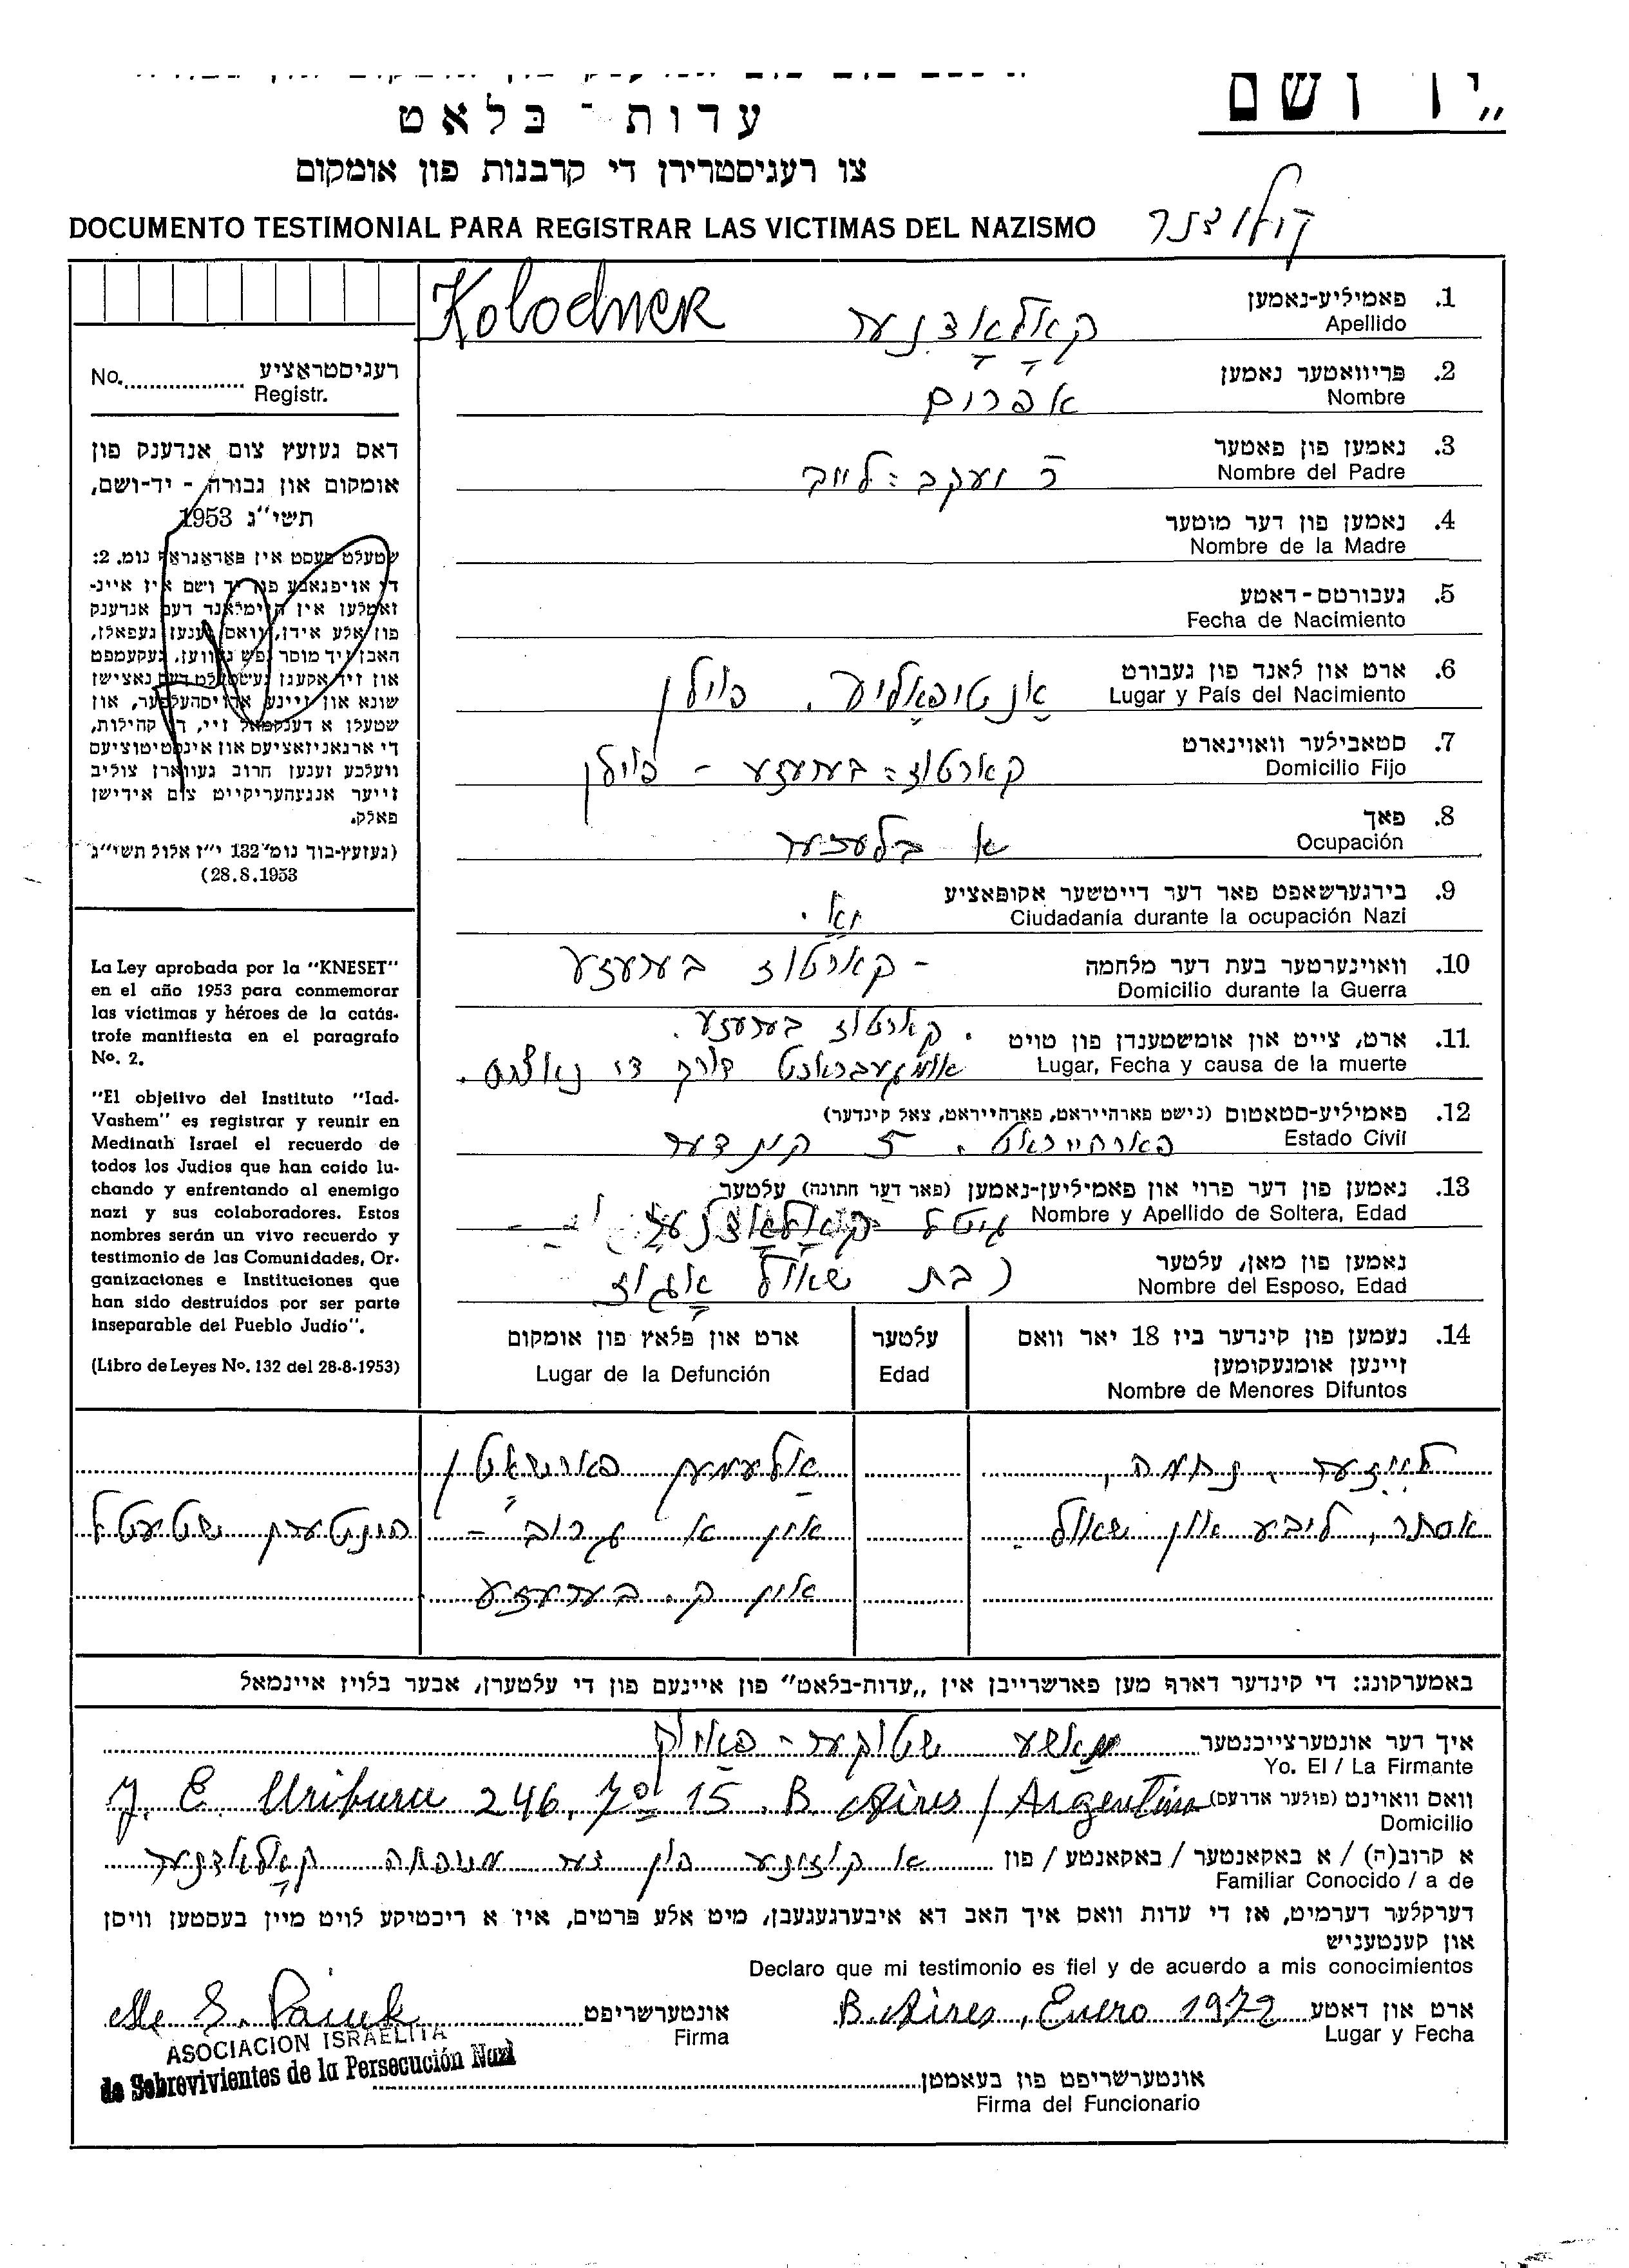 „יד ושם
עדות־בלאט
צו רעגיסטרירן די קרבנות פון אומקום
DOCUMENTO TESTIMONIAL PARA REGISTRAR LAS VICTIMAS DEL NAZISMO
קולודנר
1. פאמיליע-נאמען
Apellido
קאָלאָדנער Kolodner
2. פריוואטער נאמען
Nombre
אפרים
3. נאמען פון פאטער
Nombre del Padre
ר' יעקב-לייב
4. נאמען פון דער מוטער
Nombre de la Madre
5. געבורטס-דאטע
Fecha de Nacimiento
6. ארט און לאנד פון געבורט
Lugar y País del Nacimiento
אַנטיפאָליע, פוילן
7. סטאבילער וואוינארט
Domicilio Fijo
קארטוז-בערעזע - פוילן
8. פאך
Ocupación
א בלעכער
9. בירגערשאפט פאר דער דייטשער אקופאציע
Ciudadanía durante la ocupación Nazi
יאָ.
10. וואוינערטער בעת דער מלחמה
Domicilio durante la Guerra
- קארטוז בערעזע
11. ארט, צייט און אומשטענדן פון טויט
Lugar, Fecha y causa de la muerte
קארטוז בערעזע.
אומגעבראכט דורך די נאציס.
12. פאמיליע-סטאטוס (נישט פארהייראט, פארהייראט, צאל קינדער)
Estado Civil
פארהייראט. 5 קינדער
13. נאמען פון דער פרוי און פאמיליען-נאמען (פאר דער חתונה) עלטער
Nombre y Apellido de Soltera, Edad
גיטל קאָלאָדנער
נאמען פון מאן, עלטער
Nombre del Esposo, Edad
(בת שאול
14. נעמען פון קינדער ביז 18 יאר וואס זיינען אומגעקומען
Nombre de Menores Difuntos
עלטער
Edad
ארט און פלאץ פון אומקום
Lugar de la Defunción
לייזער, נחמה,
אַלעמען פארשאָטן
אסתר, ליבע און שאול
אין א גרוב - הונטערן שטעטל
אין ק. בערעזע
באמערקונג: די קינדער דארף מען פארשרייבן אין „עדות-בלאט" פון איינעם פון די עלטערן, אבער בלויז איינמאל
איך דער אונטערצייכנטער מאשע שטוקער-פאיוק
Yo. El / La Firmante
וואס וואוינט (פולער אדרעס) J. E. Uriburu 246, 7º 15. B. Aires / Argentina
Domicilio
א קרוב(ה) / א באקאנטער / באקאנטע / פון א קוזינע פון דער משפחה קאָלאָדנער
Familiar Conocido / a de
דערקלער דערמיט, אז די עדות וואס איך האב דא איבערגעגעבן, מיט אלע פרטים, איז א ריכטיקע לויט מיין בעסטען וויסן
און קענטעניש
Declaro que mi testimonio es fiel y de acuerdo a mis conocimientos
ארט און דאטע B. Aires, Enero 1972
Lugar y Fecha
אונטערשריפט
Firma
ASOCIACION ISRAELITA
de Sobrevivientes de la Persecución Nazi
אונטערשריפט פון באאמטן
Firma del Funcionario
רעגיסטראציע No.
Registr.
דאס געזעץ צום אנדענק פון
אומקום און גבורה - יד-ושם,
תשי"ג 1953
שטעלט פעסט אין פאראגראף נומ. 2:
די אויפגאבע פון יד ושם איז איינ-
זאמלען אין היימלאנד דעם אנדענק
פון אלע אידן, וואס זענען געפאלן,
האבן זיך מוסר נפש געווען, געקעמפט
און זיך אקעגן געשטעלט דעם נאצישן
שונא און זיינע ארויסהעלפער, און
שטעלן א דענקמאל זיי, די קהילות,
די ארגאניזאציעס און אינסטיטוציעס
וועלכע זענען חרוב געווארן צוליב
זייער אנגעהעריקייט צום אידישן
פאלק.
(געזעץ-בוך נומ' 132 י"ז אלול תשי"ג
28.8.1953)
La Ley aprobada por la "KNESET"
en el año 1953 para conmemorar
las víctimas y héroes de la catás-
trofe manifiesta en el paragrafo
No. 2.
"El objetivo del Instituto "Iad-
Vashem" es registrar y reunir en
Medinath Israel el recuerdo de
todos los Judios que han caido lu-
chando y enfrentando al enemigo
nazi y sus colaboradores. Estos
nombres serán un vivo recuerdo y
testimonio de las Comunidades, Or-
ganizaciones e Instituciones que
han sido destruídos por ser parte
inseparable del Pueblo Judío".
(Libro de Leyes No. 132 del 28-8-1953)